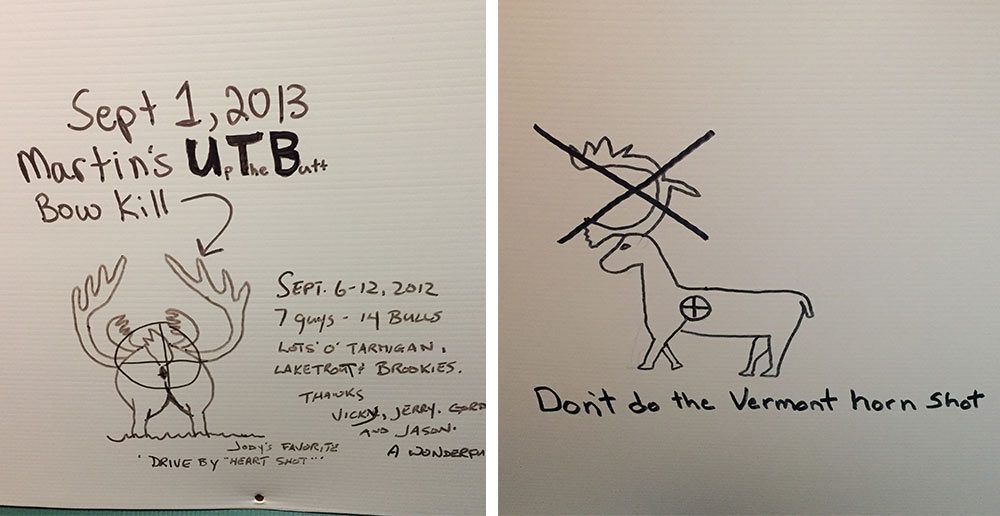 Sept 1, 2013
Martin's Up The Butt
Bow Kill
SEPT. 6-12, 2012
7 guys - 14 BULLS
LOTS 'O' TARMIGAN,
LAKETROUT & BROOKIES.
THANKS
VICKY, JERRY, GORD
AND JASON.
A WONDERFU
JODY'S FAVORITE
'DRIVE BY "HEART SHOT"'
Don't do the Vermont horn shot